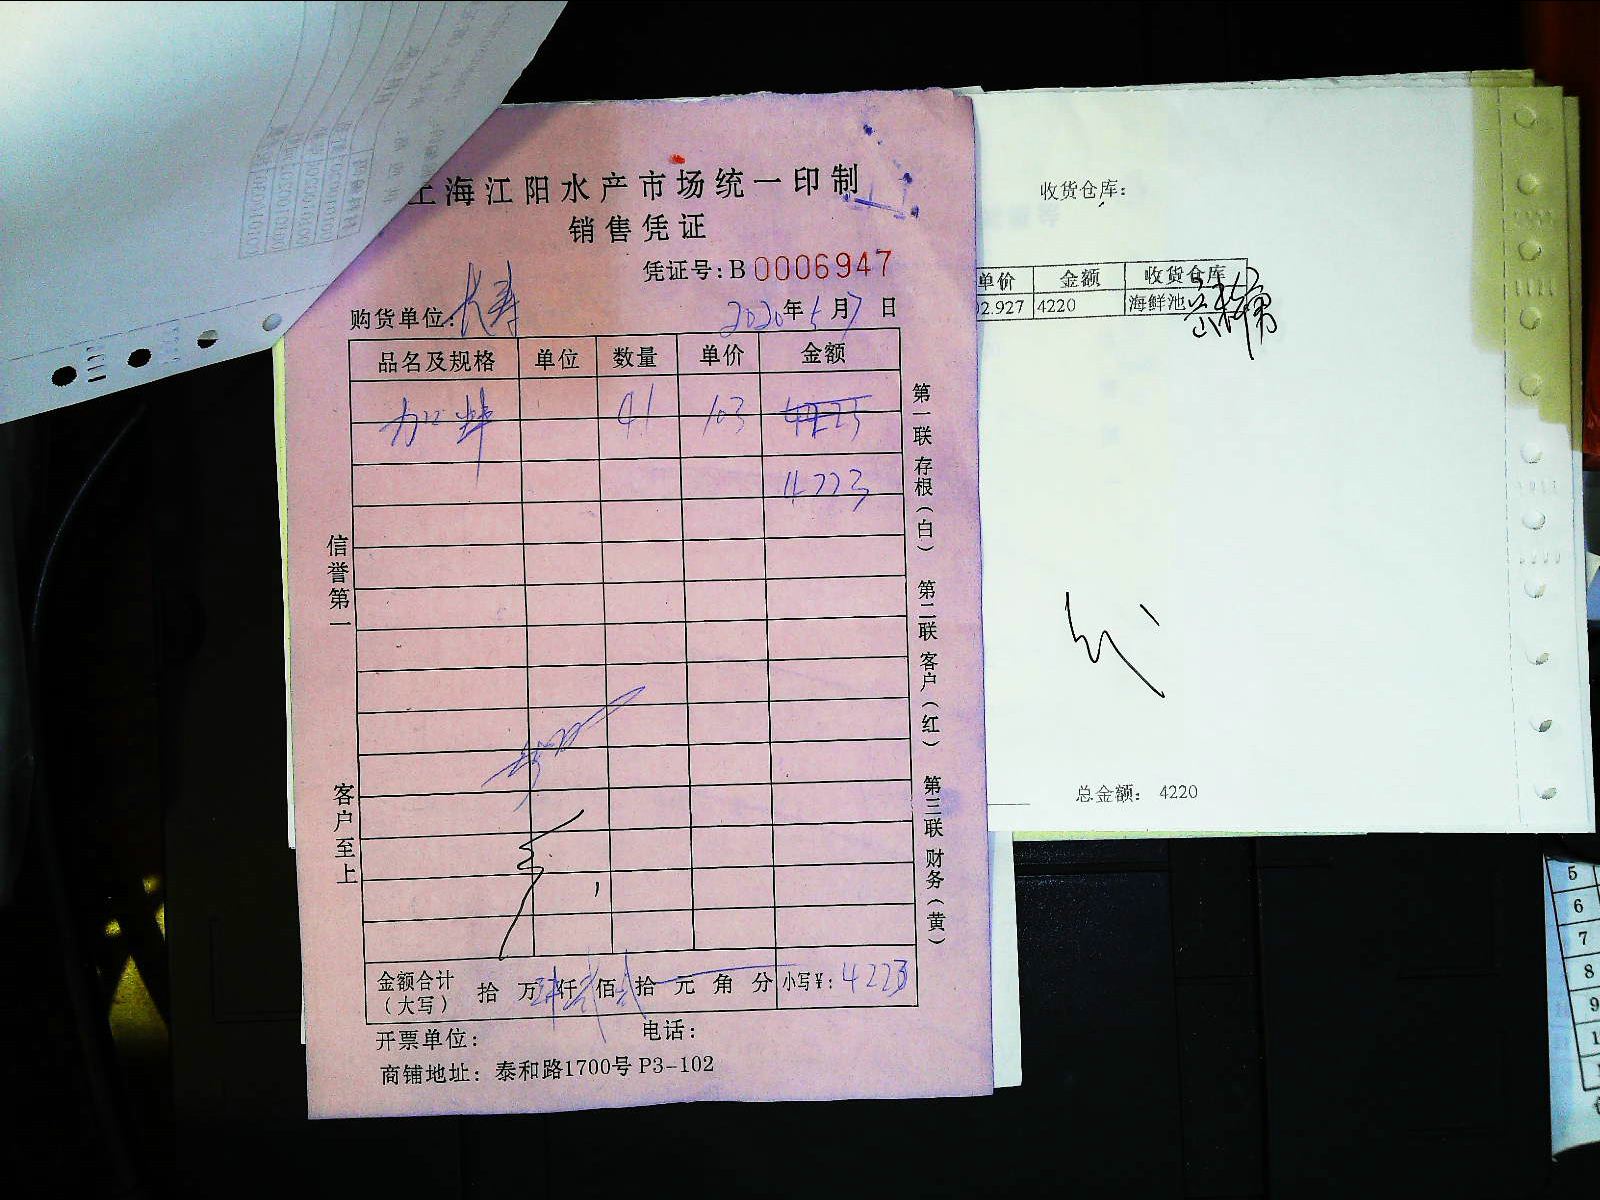 上海江阳水产市场统一印制
销售凭证
凭证号:B 0006947
购货单位:大寿 2020年5月7日
品名及规格 单位 数量 单价 金额
41 103 4225
4223
信誉第一
客户至上
第一联存根(白) 第二联客户(红) 第三联财务(黄)
金额合计(大写) 拾 万 肆仟 贰佰 贰拾 元 角 分 小写¥: 4223
开票单位: 电话:
商铺地址: 泰和路1700号 P3-102
收货仓库:
单价 金额 收货仓库
02.927 4220 海鲜池
总金额: 4220
5
6
7
8
9